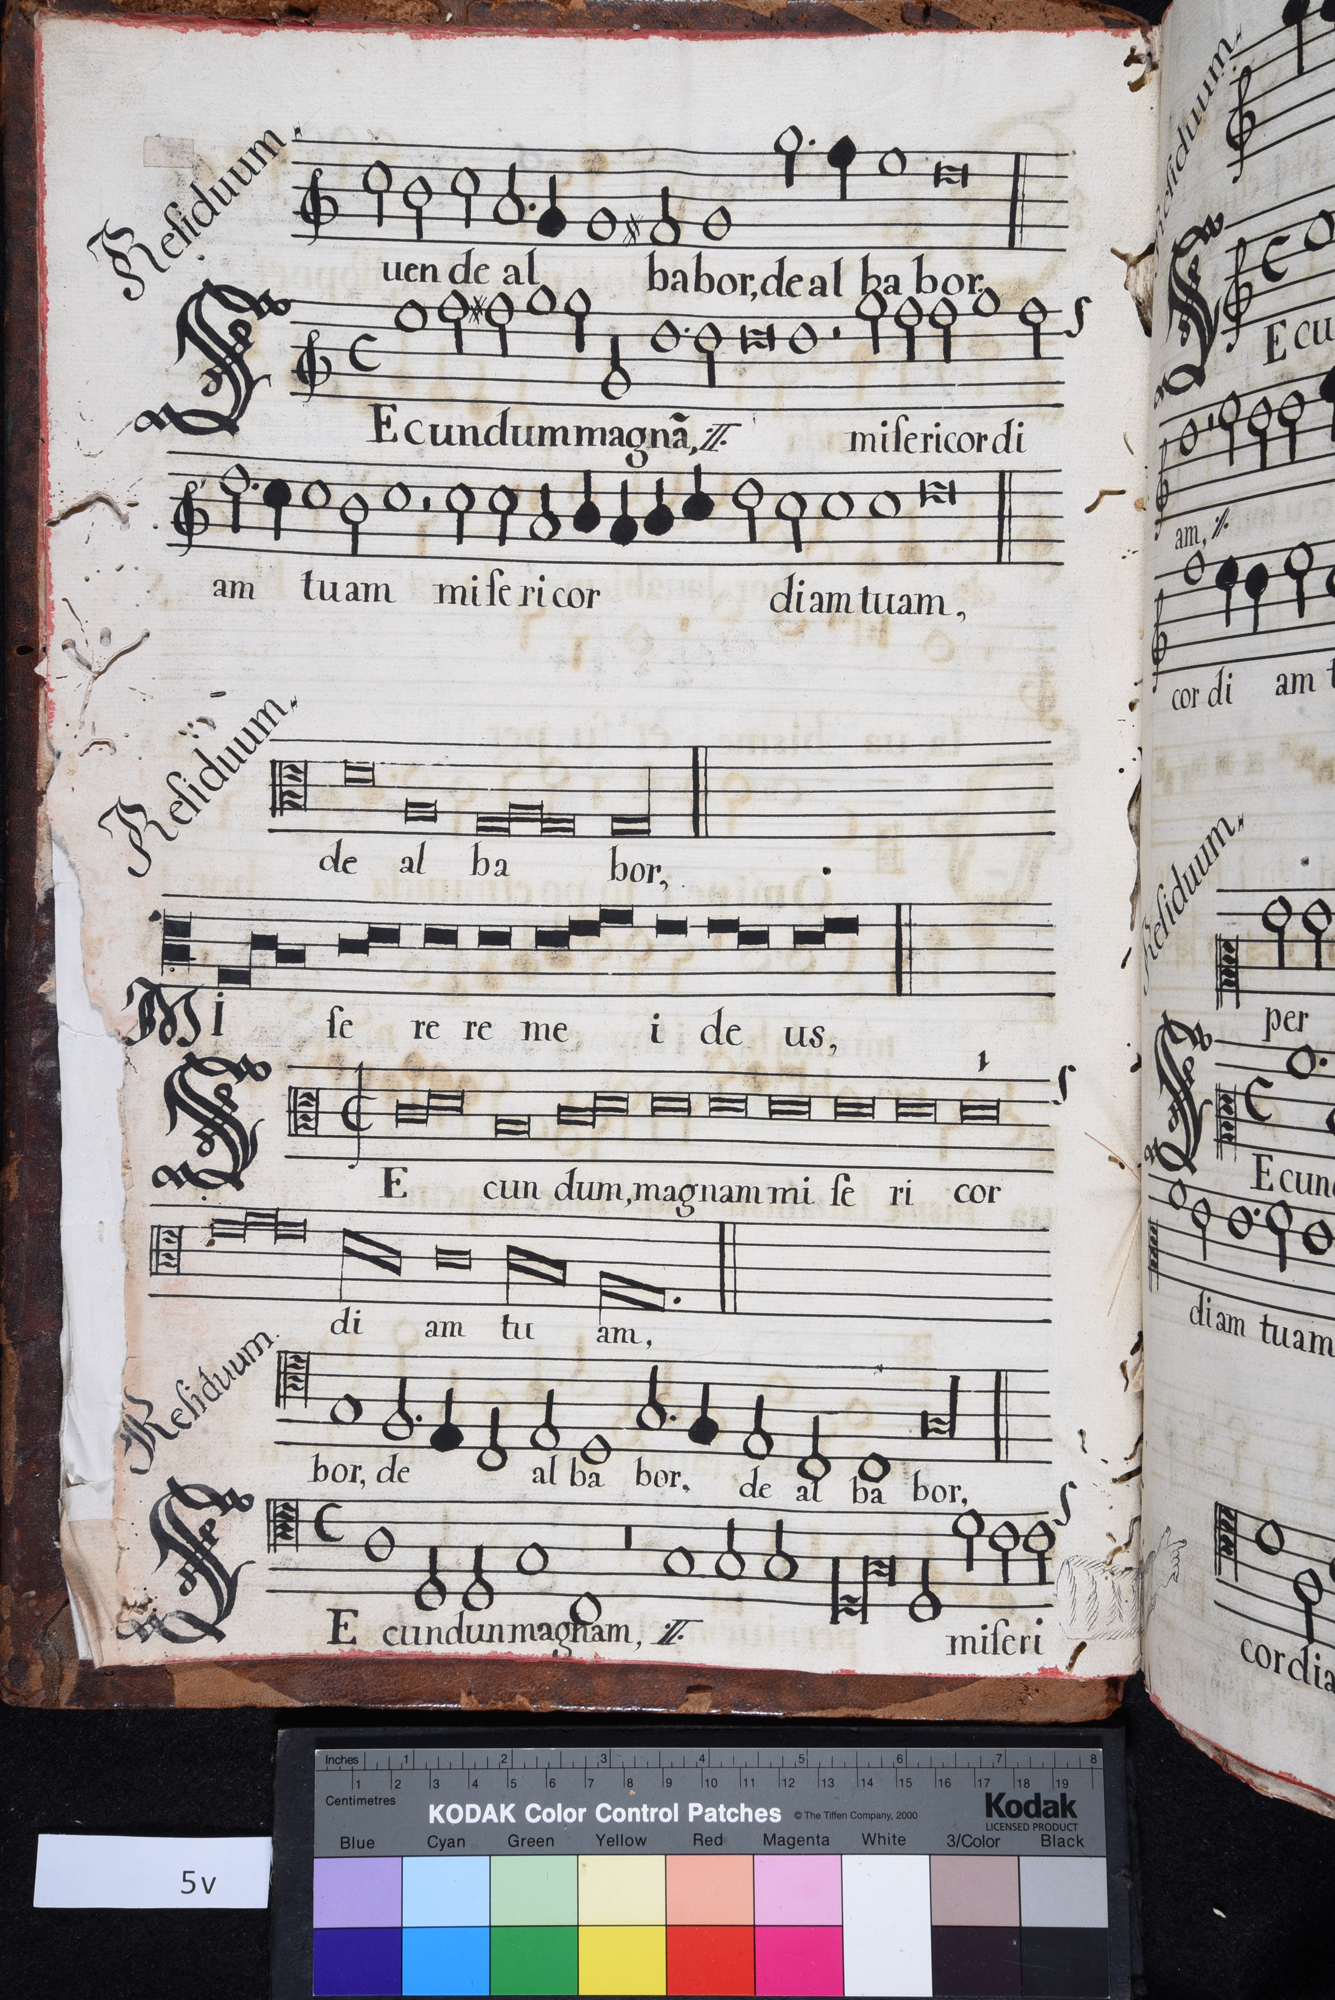 Residuum.
uen de al babor, de al ba bor,
SEcundum magnã, ij. misericordi
am tuam misericor diam tuam,
Residuum.
de al ba bor,
Mi se re re me i de us,
SE cun dum, magnam mi se ri cor
di am tu am,
Residuum.
bor, de al ba bor, de al ba bor,
SE cundun magnam, ij. miseri
Residuum.
Ecu
am, ij.
cordi am t
Residuum.
per
SEcund
diam tuam
cordia
Inches 1 2 3 4 5 6 7 8
1 2 3 4 5 6 7 8 9 10 11 12 13 14 15 16 17 18 19
Centimetres
KODAK Color Control Patches © The Tiffen Company, 2000 Kodak
LICENSED PRODUCT
Blue Cyan Green Yellow Red Magenta White 3/Color Black
5v